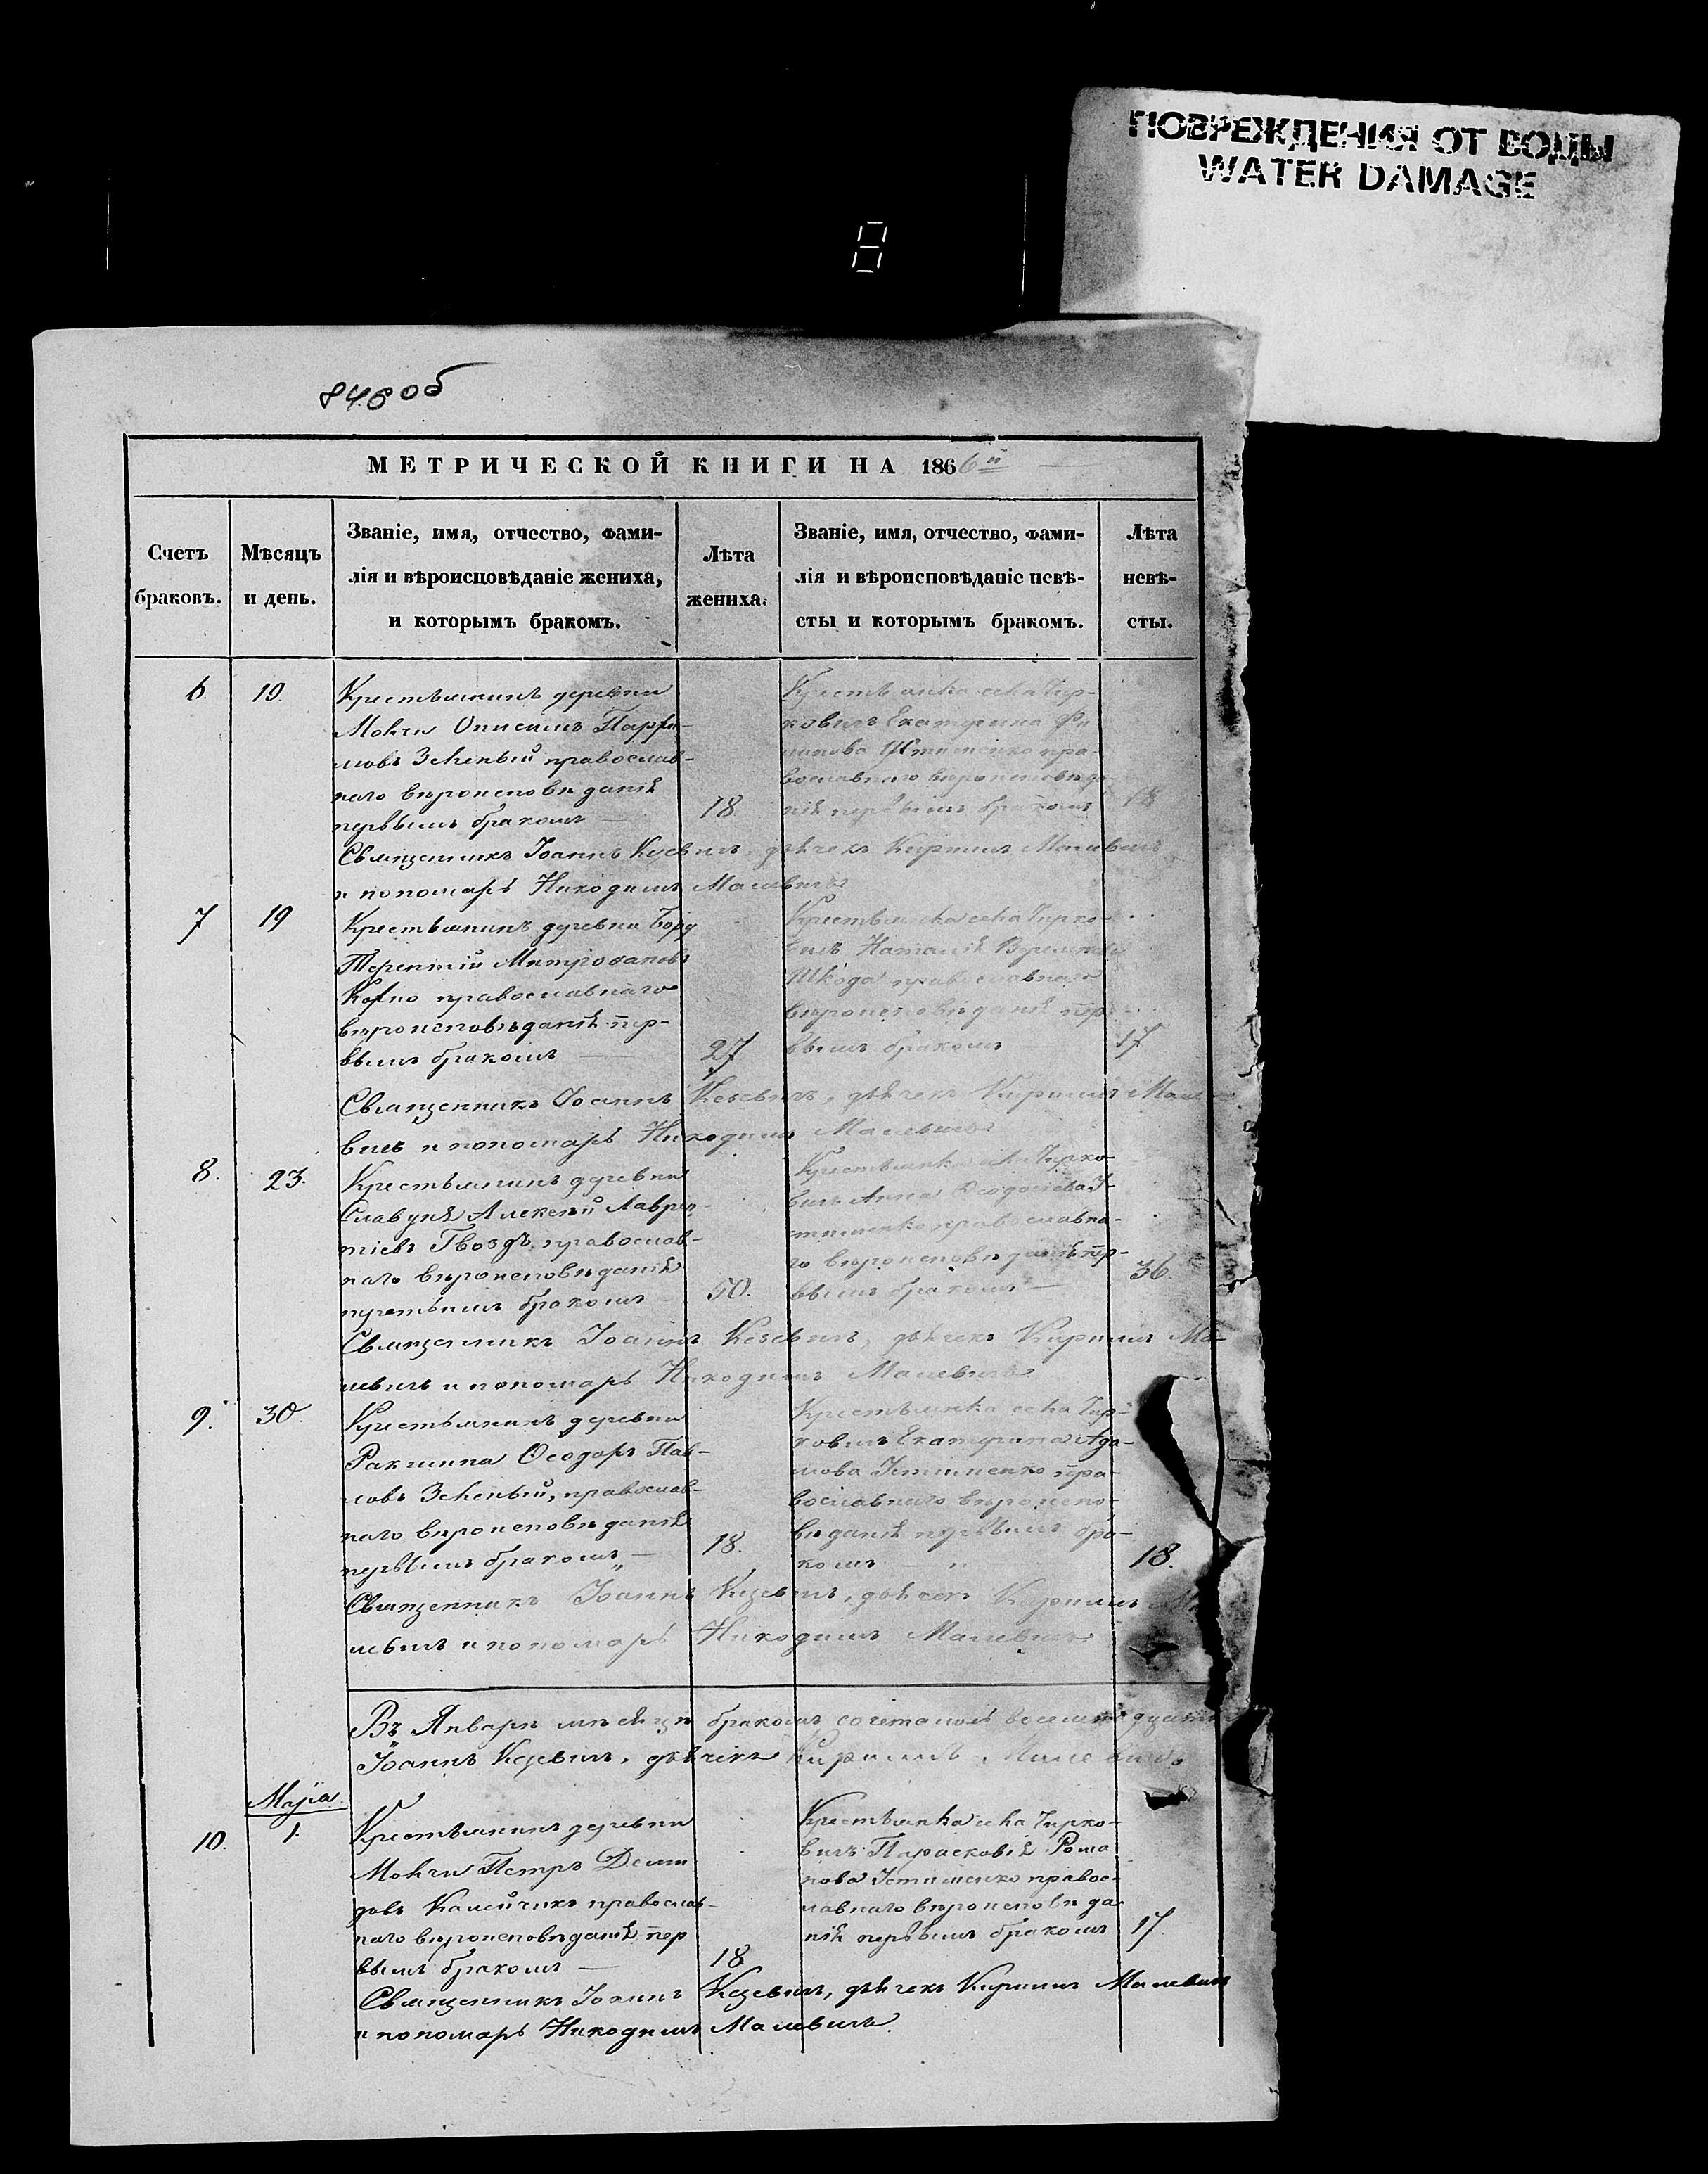 ПОВРЕЖДЕНИЯ ОТ ВОДЫ
WATER DAMAGE
846 об
МЕТРИЧЕСКОЙ КНИГИ НА 1866й
Счетъ браковъ.
Мѣсяцъ и день.
Званіе, имя, отчество, фами-
лія и вѣроисповѣданіе жениха,
и которымъ бракомъ.
Лѣта жениха.
Званіе, имя, отчество, фами-
лія и вѣроисповѣданіе невѣ-
сты и которымъ бракомъ.
Лѣта невѣ-
сты.
6. 19.
Крестьянинъ деревни
Мокчи Онисимъ Парфе-
новъ Зеленый православ-
наго вѣроисповѣданія
первымъ бракомъ 18
Крестьянка села Чир-
ковичъ Екатерина Фи
липова Устименко пра-
вославнаго вѣроисповѣда-
нія первымъ бракомъ 18
Священникъ Іоаннъ Кезевичъ, дьячекъ Кириллъ Малевичъ
и пономарь Никодимъ Малевичъ
7 19
Крестьянинъ деревни Бору
Терентій Митрофановъ
православнаго
вѣроисповѣданія пер-
вымъ бракомъ 27
Крестьянка села Чирко-
вичъ Наталія
Шкода православнаго
вѣроисповѣданія пер
вымъ бракомъ 17
Священникъ Іоаннъ Кезевичъ, дьячекъ Кириллъ Мале
вичъ и пономарь Никодимъ Малевичъ
8. 23.
Крестьянинъ деревни
Алексѣй Лаврен-
тіевъ Гвоздь православ-
наго вѣроисповѣданія
третьимъ бракомъ 50.
Крестьянка села Чирко-
вичъ Анна Ѳеодосіева У-
стименко православна-
го вѣроисповѣданія пер-
вымъ бракомъ 36.
Священникъ Іоаннъ Кезевичъ, дьячекъ Кириллъ Ма-
левичъ и пономарь Никодимъ Малевичъ
9. 30.
Крестьянинъ деревни
Ракшина Ѳеодоръ Пав-
ловъ Зеленый, православ-
наго вѣроисповѣданія
первымъ бракомъ 18.
Крестьянка села Чир-
ковичъ Екатерина Ада-
мова Устименко пра-
вославнаго вѣроиспо-
вѣданія первымъ бра-
комъ 18.
Священникъ Іоаннъ Кезевичъ, дьячекъ Кириллъ Ма
левичъ и пономарь Никодимъ Малевичъ
Въ Январѣ мѣсяцѣ бракомъ сочеталось
Іоаннъ Кезевичъ, дьячекъ Кириллъ Малевичъ
Маія
10. 1.
Крестьянинъ деревни
Мокчи Петръ Деми
довъ православ-
наго вѣроисповѣданія пер
вымъ бракомъ 18
Крестьянка села Чирко-
вичъ Парасковія Рома
нова Устименко правос-
лавнаго вѣроисповѣда
нія первымъ бракомъ 17.
Священникъ Іоаннъ Кезевичъ, дьячекъ Кириллъ Малевичъ
и пономарь Никодимъ Малевичъ.